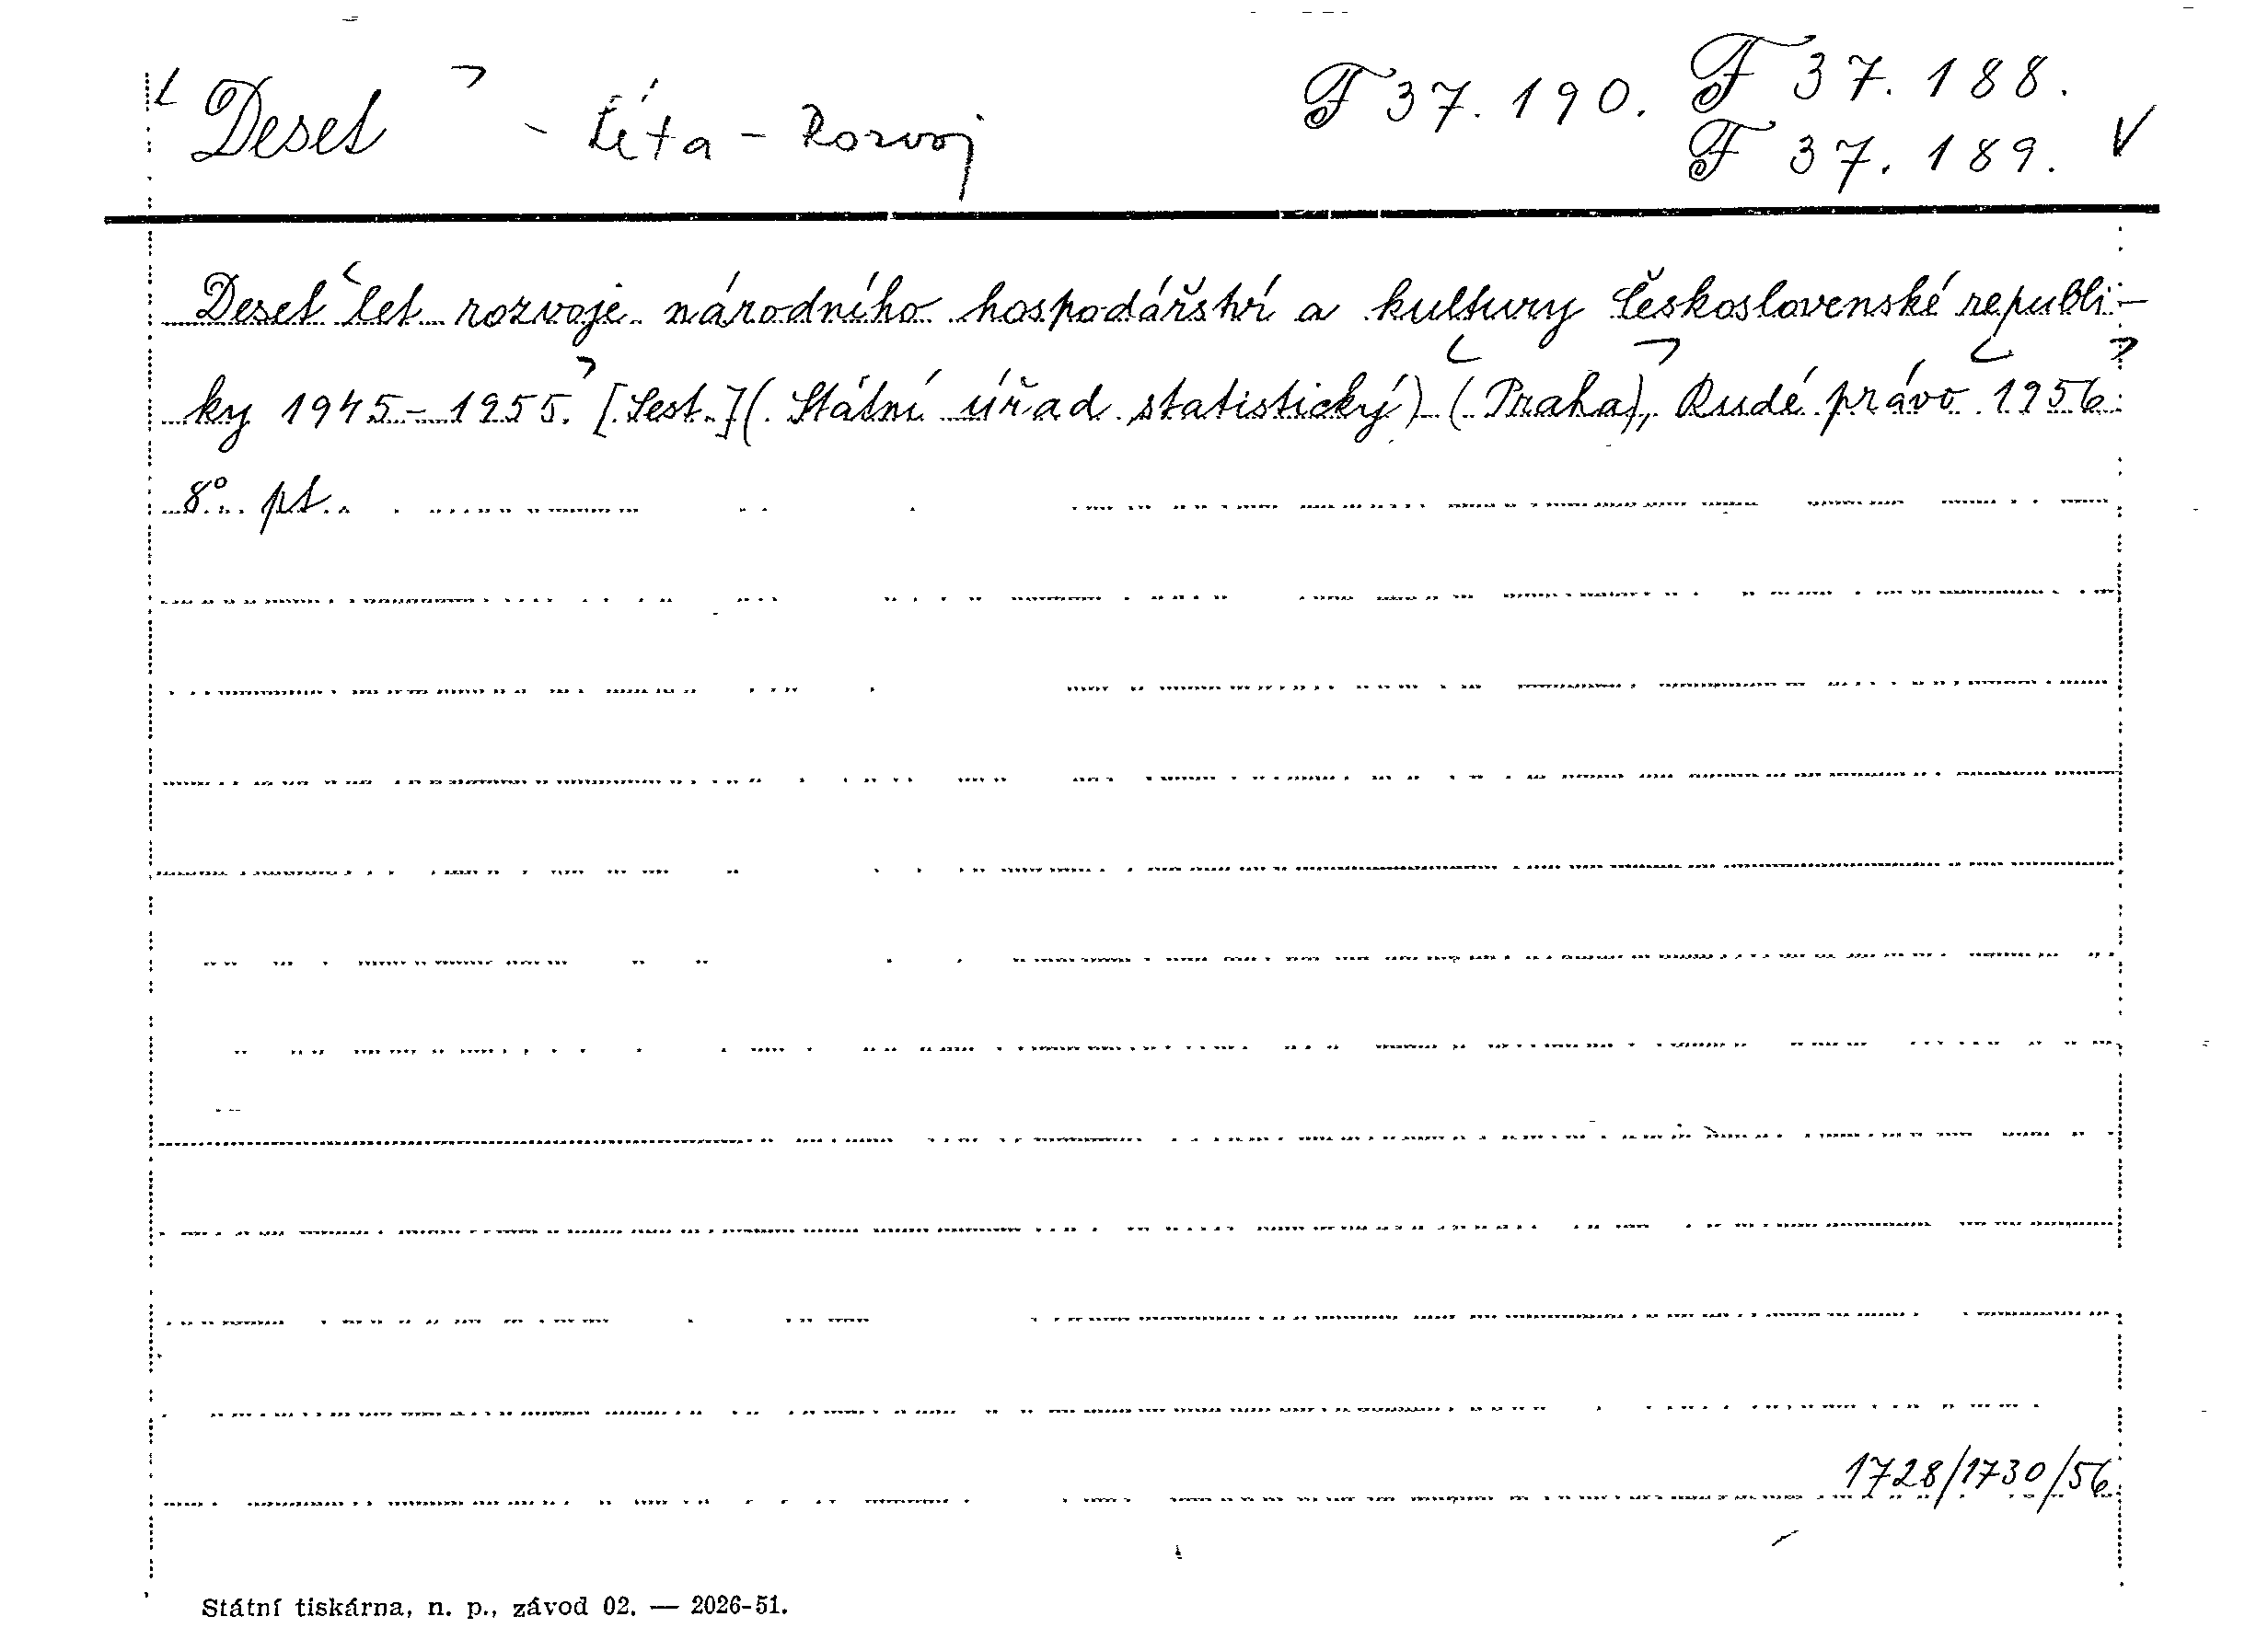 Deset - Léta - Rozvoj F 37.190. F 37.188.
F 37.189. V
Deset let rozvoje národního hospodářství a kultury Československé republi-
ky 1945-1955. [Sest.] (Státní úřad statistický) (Praha), Rudé právo 1956.
8° pt.
1728/1730/56
Státní tiskárna, n. p., závod 02. — 2026-51.